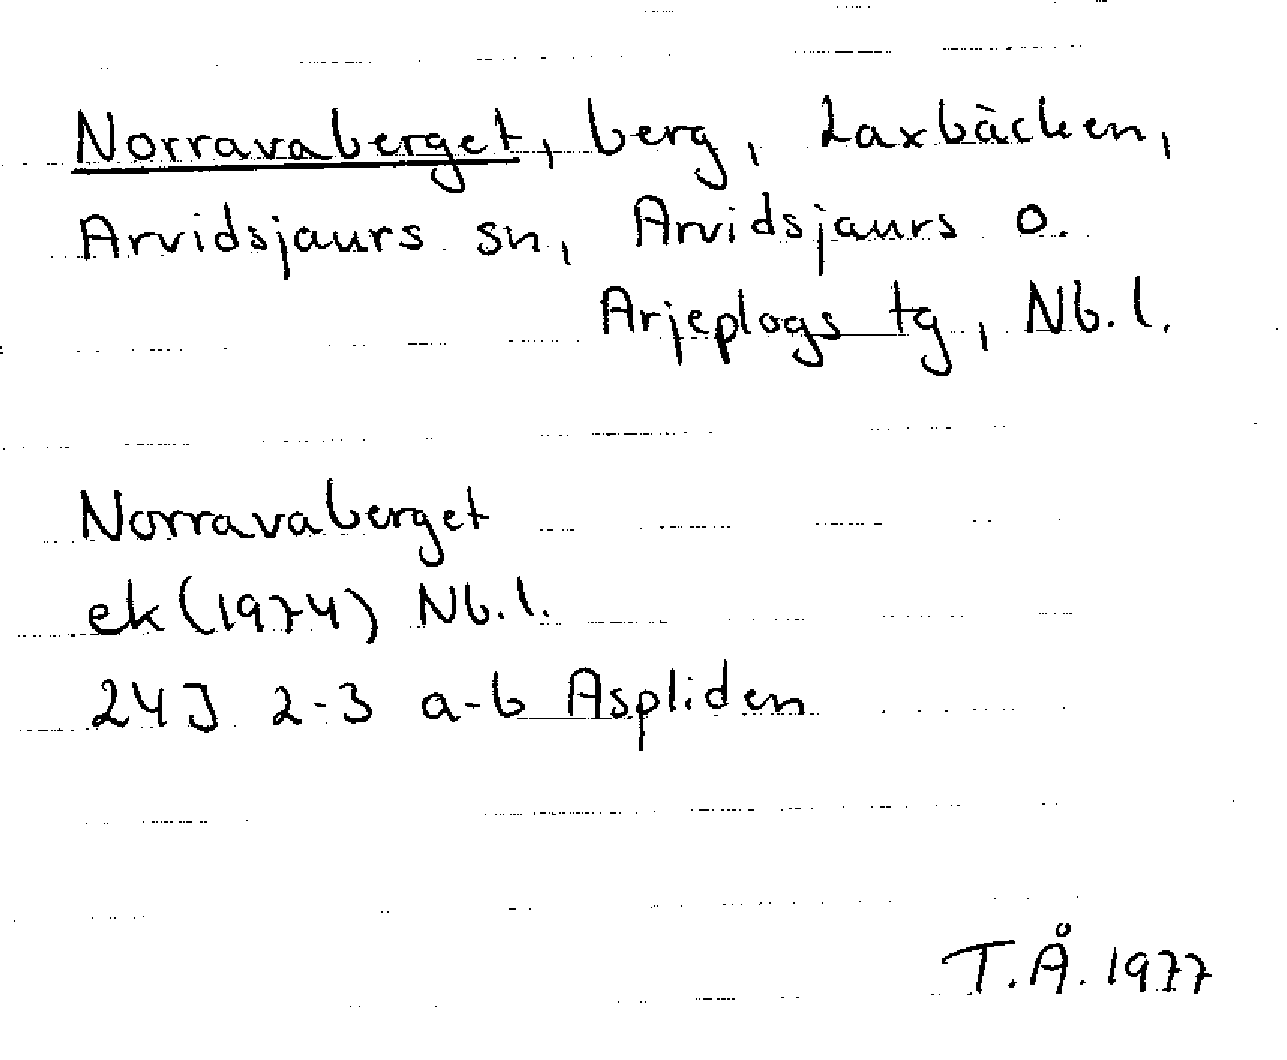 Norravaberget, berg, Laxbäcken,
Arvidsjaurs sn, Arvidsjaurs o.
Arjeplogs tg, Nb.l.
Norravaberget
ek (1974) Nb.l.
24J 2-3 a-b Aspliden
T.Å. 1977